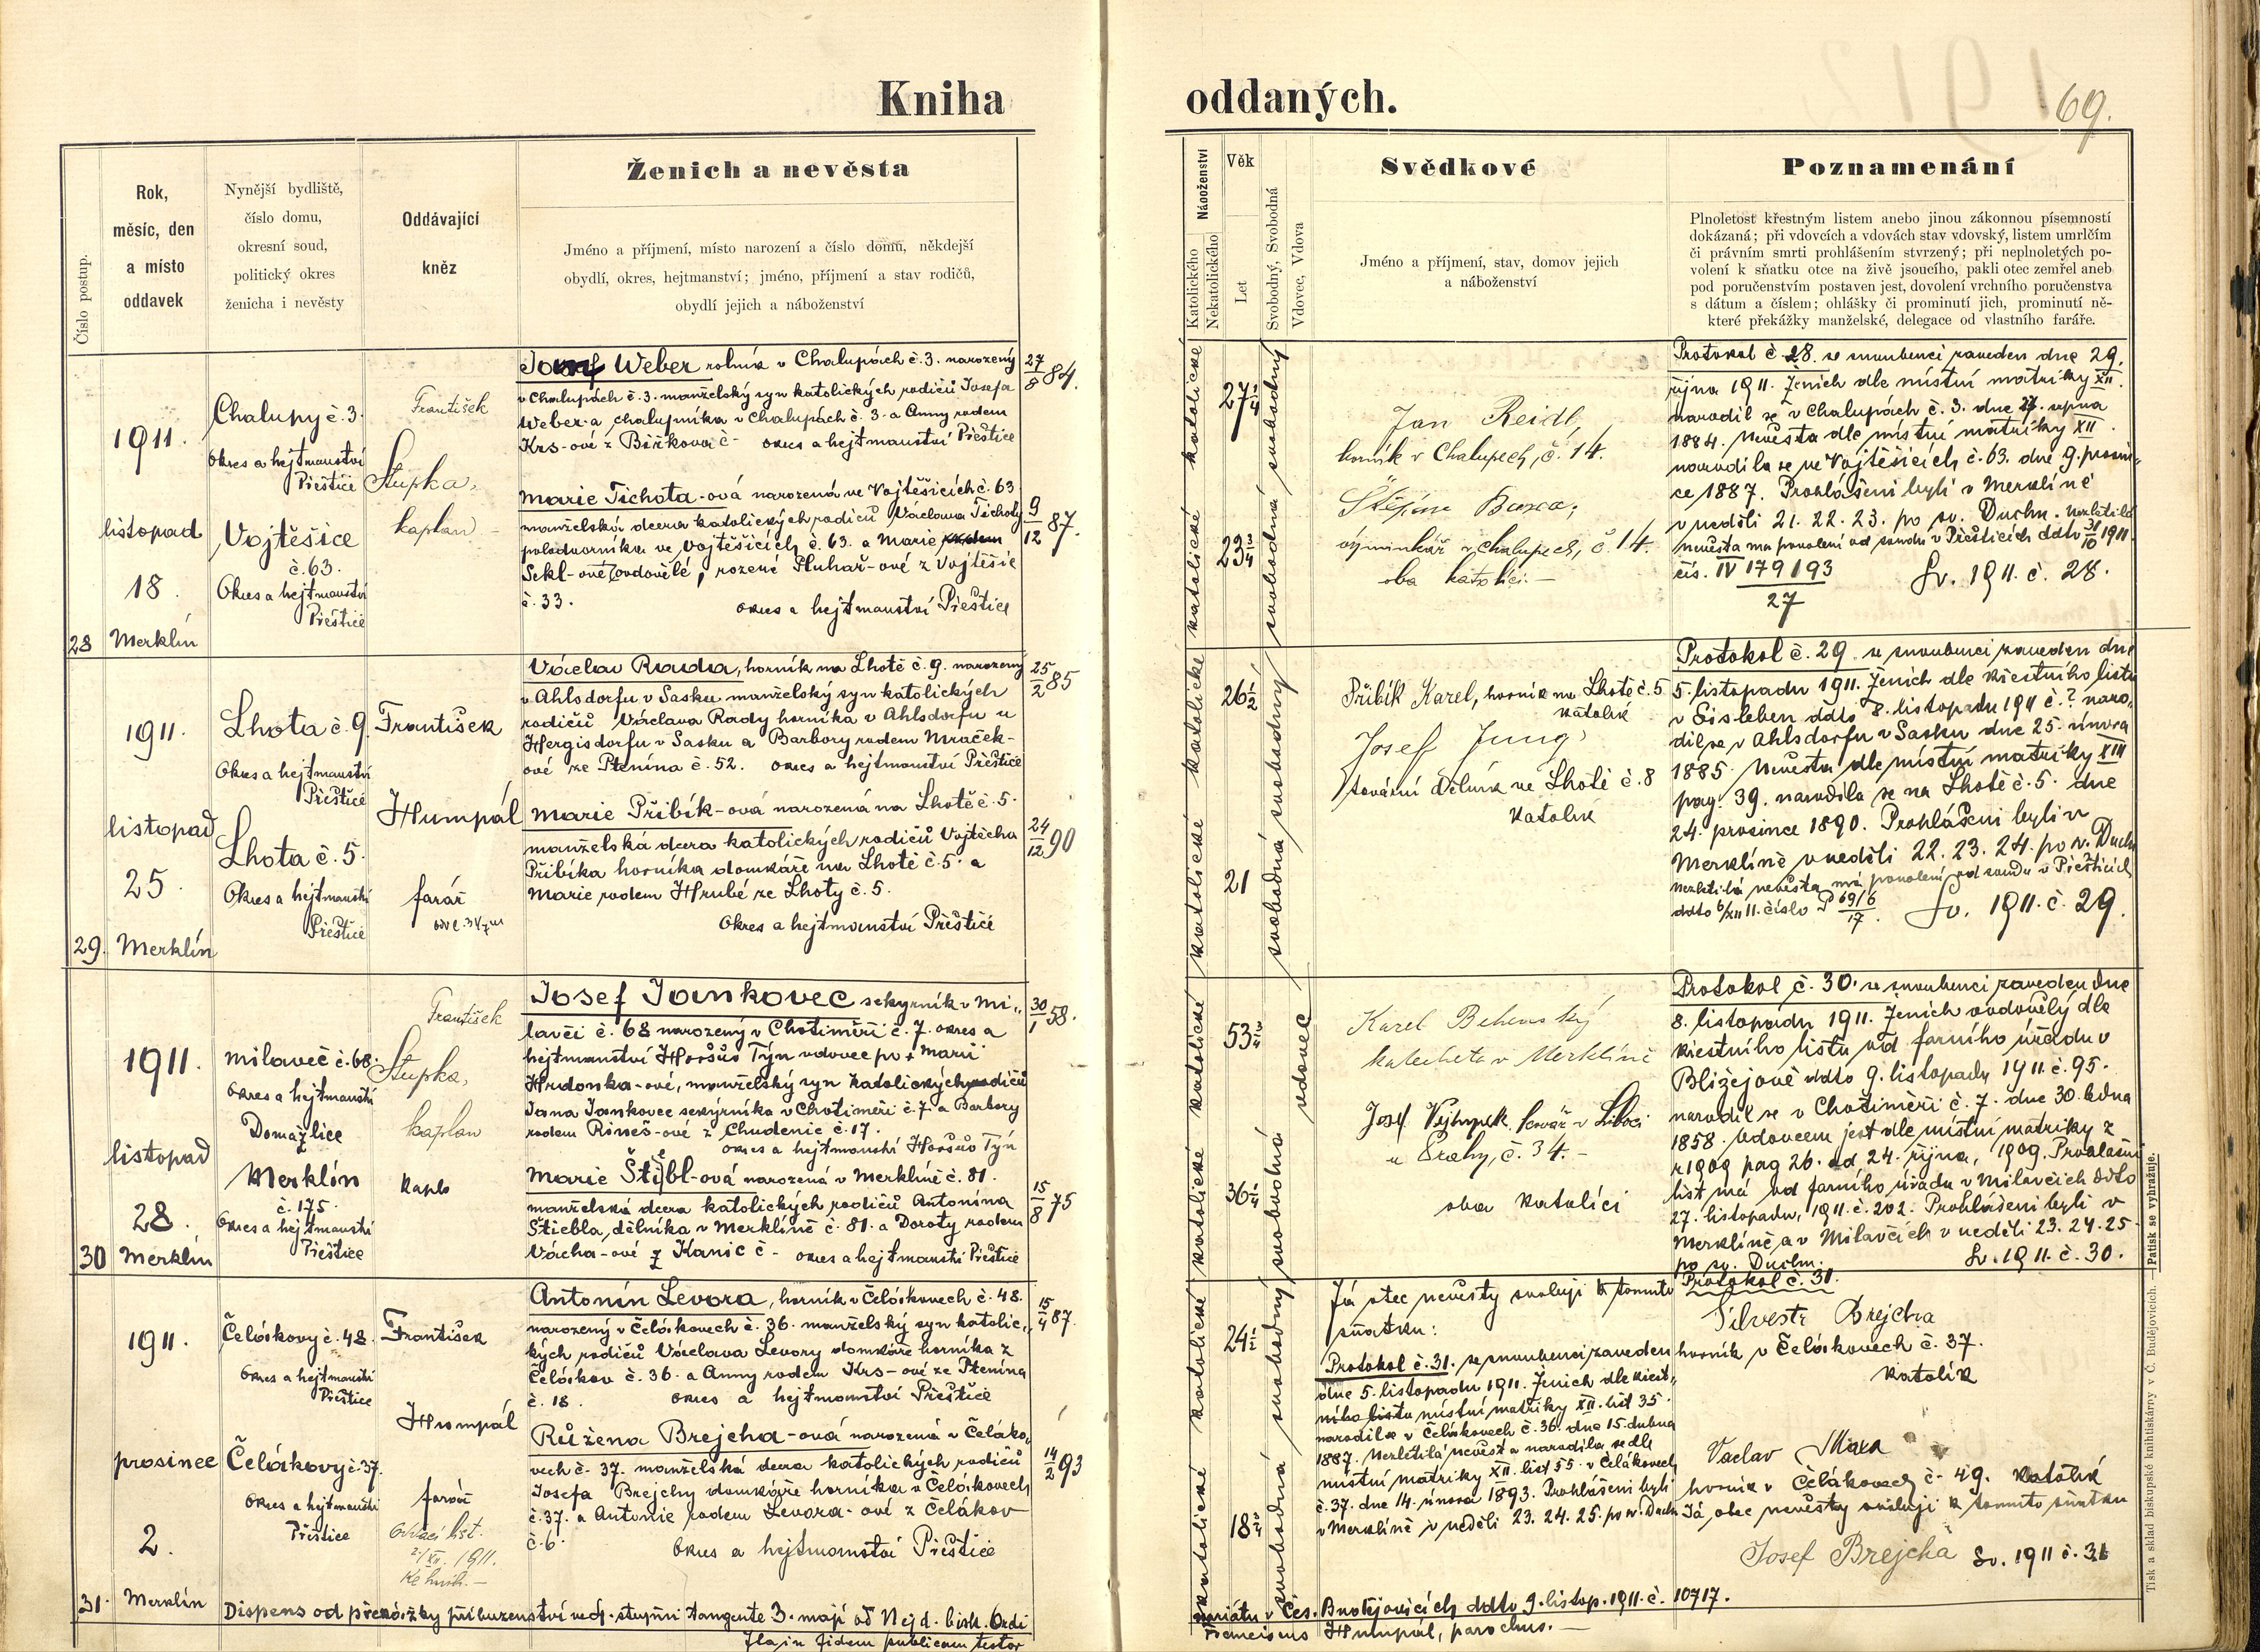 Kniha
oddaných.
69.
Číslo postup.
Rok,
měsíc, den
a místo
oddavek
Nynější bydliště,
číslo domu,
okresní soud,
politický okres
ženicha i nevěsty
Oddávající
kněz
Ženich a nevěsta
Jméno a příjmení, místo narození a číslo domu, někdejší
obydlí, okres, hejtmanství; jméno, příjmení a stav rodičů,
obydlí jejich a náboženství
Náboženství
Katolického
Nekatolického
Věk
Let
Svobodný, Svobodná
Vdovec, Vdova
Svědkové
Jméno a příjmení, stav, domov jejich
a náboženství
Poznamenání
Plnoletost křestným listem anebo jinou zákonnou písemností
dokázaná; při vdovcích a vdovách stav vdovský, listem umrlčím
či právním smrti prohlášením stvrzený; při neplnoletých po-
volení k sňatku otce na živě jsoucího, pakli otec zemřel aneb
pod poručenstvím postaven jest, dovolení vrchního poručenstva
s dátum a číslem; ohlášky či prominutí jich, prominutí ně-
které překážky manželské, delegace od vlastního faráře.
28
1911.
listopad
18.
Merklín
Chalupy č. 3.
Okres a hejtmanství
Přeštice
Vojtěšice
č. 63.
Okres a hejtmanství
Přeštice
František
Stupka,
kaplan
Josef Weber rolník v Chalupách č. 3. narozený
v Chalupách č. 3. manželský syn katolických rodičů Josefa
Weber-a chalupníka v Chalupách č. 3. a Anny rodem
Krs-ové z Biřkova č - okres a hejtmanství Přeštice
27/8 84.
Marie Tichota-ová narozená ve Vojtěšicích č. 63
manželská dcera katolických rodičů Václava Tichoty
poladvorníka ve Vojtěšicích č. 63. a Marie
Sekl-ové ovdovělé, rozené Pluhař-ové z Vojtěšic
č. 33. okres a hejtmanství Přeštice
9/12 87.
katolické
katolické
27 1/4
23 3/4
svobodný
svobodná
Jan Reidl,
horník v Chalupech, č. 14.
Štěpán Baxa,
výminkář v Chalupech, č. 14.
oba katolíci. -
Protokol č. 28. se snoubenci zaveden dne 29.
října 1911. Ženich dle místní matriky XII.
narodil se v Chalupách č. 3. dne 27. srpna
1884. Nevěsta dle místní matriky XII
narodila se ve Vojtěšicích č. 63. dne 9. prosin-
ce 1887. Prohlášeni byli v Merklíně
v neděli 21. 22. 23. po sv. Duchu. Nezletilá
nevěsta má povolení od soudu v Přešticích ddto 31/10 1911
čís. IV 179193/27 Sv. 1911. č. 28.
29.
1911.
listopad
25.
Merklín
Lhota č. 9.
Okres a hejtmanství
Přeštice
Lhota č. 5.
Okres a hejtmanství
Přeštice
František
Humpál
farář
Václav Rada, horník na Lhotě č. 9. narozený
v Ahlsdorfu v Sasku manželský syn katolických
rodičů Václava Rady horníka v Ahlsdorfu u
Hergisdorfu v Sasku a Barbory rodem Mraček-
ové ze Ptenína č. 52. okres a hejtmanství Přeštice
25/2 85
Marie Přibík-ová narozená na Lhotě č. 5.
manželská dcera katolických rodičů Vojtěcha
Přibíka horníka domkáře na Lhotě č. 5. a
Marie rodem Hrubé ze Lhoty č. 5.
Okres a hejtmanství Přeštice
24/12 90
katolické
katolické
26 1/2
21
svobodný
svobodná
Přibík Karel, horník na Lhotě č. 5
katolík
Josef Jung,
tovární dělník ve Lhotě č. 8
katolík
Protokol č. 29. se snoubenci zaveden dne
5. listopadu 1911. Ženich dle křestního listu
v Eisleben ddto 8. listopadu 1911 č. ? naro-
dil se v Ahlsdorfu v Sasku dne 25. února
1885. Nevěsta dle místní matriky XIII
pag. 39. narodila se na Lhotě č. 5. dne
24. prosince 1890. Prohlášeni byli v
Merklíně v neděli 22. 23. 24. po sv. Duchu
Nezletilá nevěsta má povolení od soudu v Přešticích
ddto 6/XII 11. číslo P 69/6/17. Sv. 1911. č. 29.
30
1911.
listopad
28.
Merklín
Milaveč č. 68.
Okres a hejtmanství
Domažlice
Merklín
č. 175.
Okres a hejtmanství
Přeštice
František
Stupka,
kaplan
Josef Jankovec sekyrník v Mi-
lavči č. 68 narozený v Chotiměři č. 7. okres a
hejtmanství Horšův Týn vdovec po + Marii
Hrdonka-ové, manželský syn katolických rodičů
Jana Jankovce sekyrníka v Chotiměři č. 7. a Barbory
rodem Rineš-ové z Chudenic č. 17.
okres a hejtmanství Horšův Týn
30/1 58.
Marie Štiebl-ová narozená v Merklíně č. 81.
manželská dcera katolických rodičů Antonína
Štiebla, dělníka v Merklíně č. 81. a Doroty rodem
Vácha-ové z Kanic č - okres a hejtmanství Přeštice
15/8 75
katolické
katolické
53 3/4
36 1/4
vdovec
svobodná
Karel Behenský
katecheta v Merklíně
Josef kovář v Liboci
u Prahy, č. 34. -
oba katolíci
Protokol č. 30. se snoubenci zaveden dne
8. listopadu 1911. Ženich ovdovělý dle
křestního listu od farního úřadu v
Blížejově ddto 9. listopadu 1911. č. 95.
narodil se v Chotiměři č. 7. dne 30. ledna
1858. Vdovcem jest dle místní matriky z
r. 1909 pag 26. od 24. října, 1909. Prohlašní
list má od farního úřadu v Milavčích ddto
27. listopadu, 1911. č. 202. Prohlášeni byli v
Merklíně, a v Milavčích v neděli 23. 24. 25
po sv. Duchu. Sv. 1911. č. 30.
31.
1911.
prosinec
2.
Merklín
Čelákovy č. 48.
Okres a hejtmanství
Přeštice
Čelákovy č. 37.
Okres a hejtmanství
Přeštice
František
Humpál
farář
Oddací list.
2/XII. 1911.
Antonín Levora, horník v Čelákovech č. 48.
narozený v Čelákovech č. 36. manželský syn katolic-
kých rodičů Václava Levory domkáře horníka z
Čelákov č. 36. a Anny rodem Krs-ové ze Ptenína
č. 18. okres a hejtmanství Přeštice
15/4 87.
Růžena Brejcha-ová narozená v Čeláko-
vech č. 37. manželská dcera katolických rodičů
Josefa Brejchy domkáře horníka v Čelákovech
č. 37. a Antonie rodem Levora-ové z Čelákov
č. 6. Okres a hejtmanství Přeštice
14/2 93
katolické
katolické
24 1/2
18 3/4
svobodný
svobodná
Já otec nevěsty svoluji k tomuto
sňatku:
Protokol č. 31. se snoubenci zaveden
dne 5. listopadu 1911. Ženich dle křest-
ního listu místní matriky XII. list 35.
narodil se v Čelákovech č. 36. dne 15. dubna
1887. Nezletilá nevěsta narodila se dle
místní matriky XII. list 55. v Čelákovech
č. 37. dne 14. února 1893. Prohlášeni byli
v Merklíně v neděli 23. 24. 25. po sv. Duchu
Protokol č. 31.
Silvestr Brejcha
horník v Čelákovech č. 37.
katolík
Vaclav Maxa
horník v Čelákovech č. 49. katolík
Já, otec nevěsty svoluji k tomuto sňatku
Josef Brejcha Sv. 1911 č. 31
Dispens od překážky příbuzenství ved. stupni tangente 3. mají od Nejd. bisk. Ordi
nariátu v Čes. Budějovicích ddto 9. listop. 1911. č. 10717.
Ita in fidem publicam testor
Franciscus Humpál, parochus. -
Tisk a sklad biskupské knihtiskárny v Č. Budějovicích. — Patisk se vyhražuje.